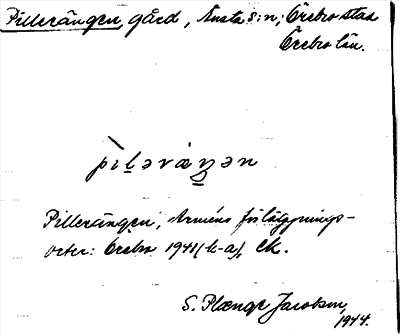 Pillerängen, gård, Ånsta s:n, Örebro stad
Örebro län.
pìləráŋən
Pillerängen, Arméns förläggnings-
orter: Örebro 1941(-k-a), ek.
S. Plænge Jacobson,
1944.